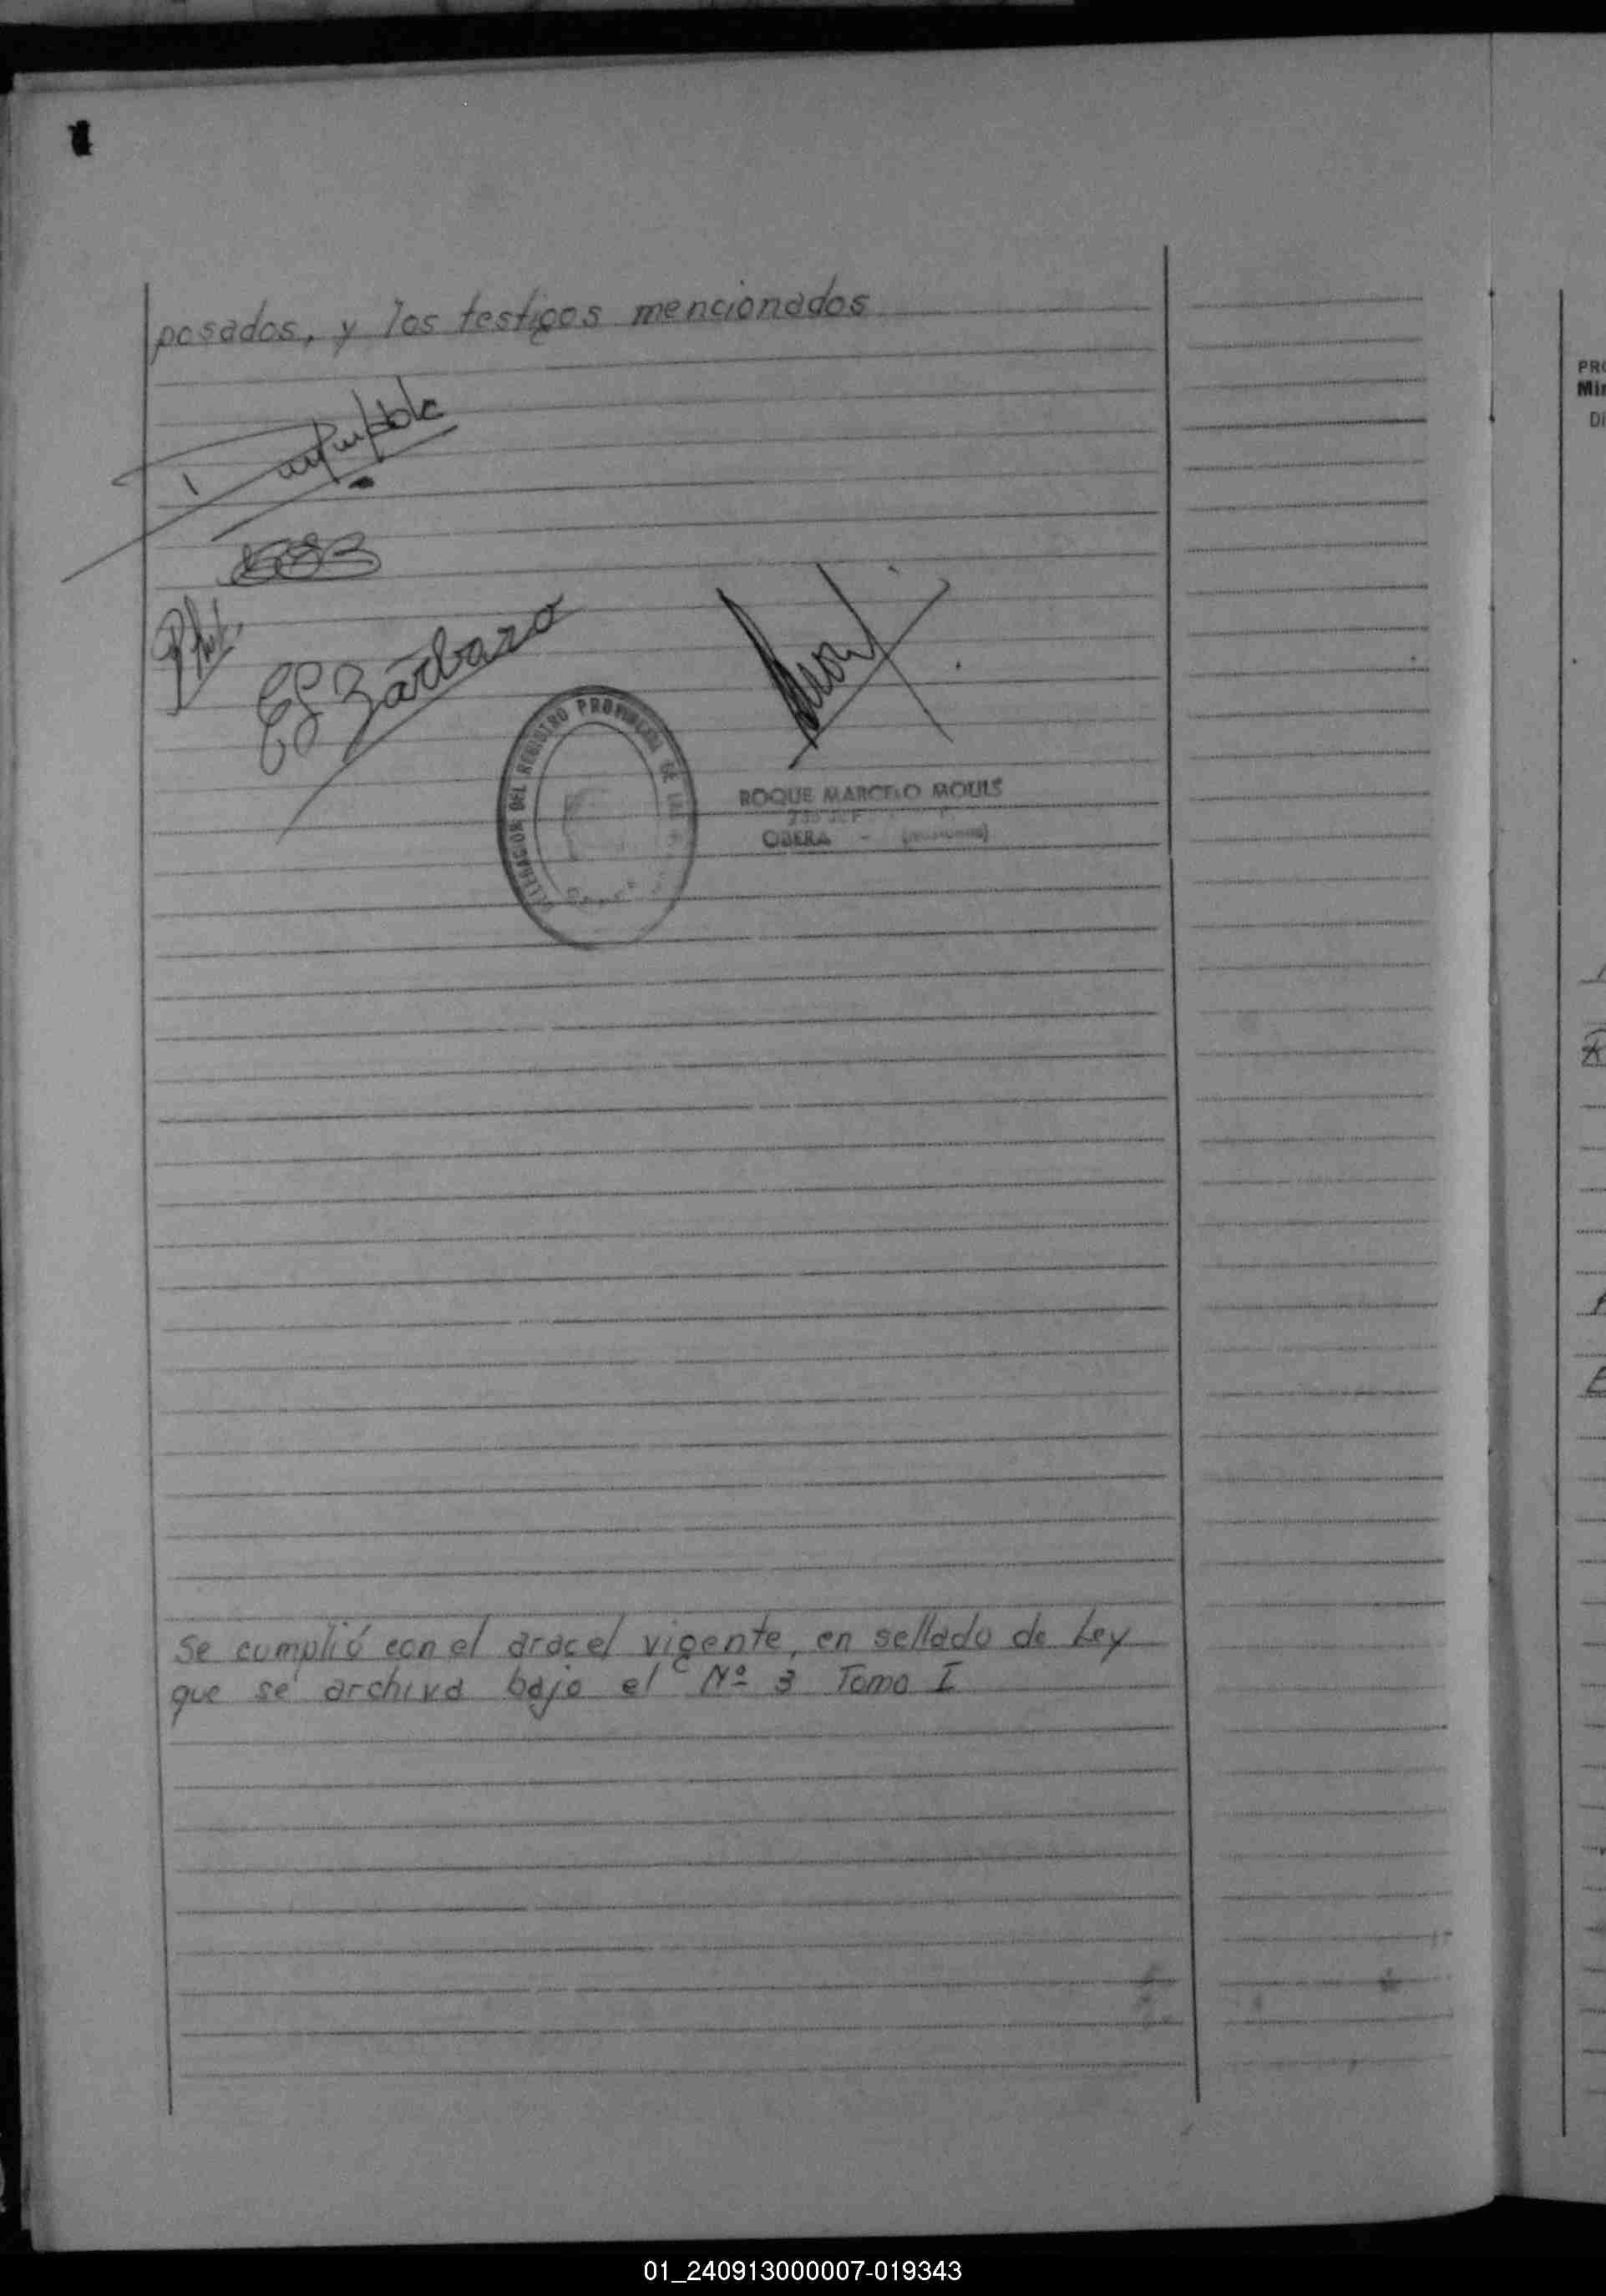 posados, y los testigos mencionados
EG Bárbaro
DELEGACION DEL REGISTRO PROVINCIAL DE LAS
ROQUE MARCELO MOULS
OBERA - (MISIONES)
Se cumplió con el aracel vigente, en sellado de Ley
que se archiva bajo el Nº 3 Tomo I
PRO
Min
Di
01_240913000007-019343